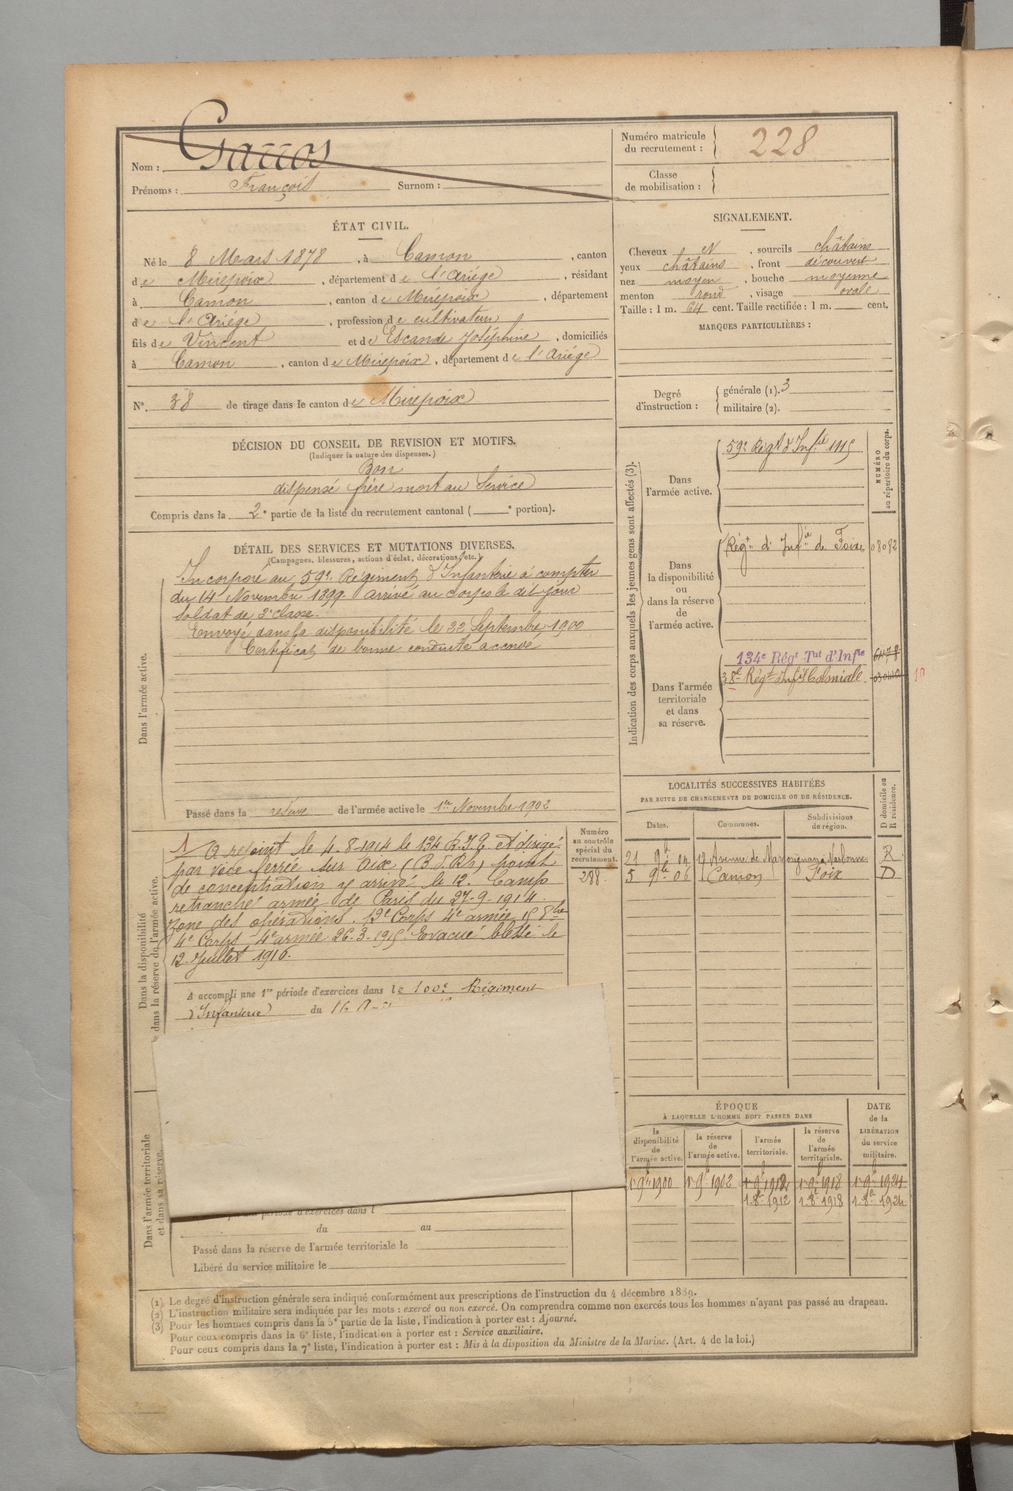 Nom : Garros
Prénoms : François Surnom :
Numéro matricule du recrutement : 228
Classe de mobilisation :
ÉTAT CIVIL.
Né le 8 Mars 1878, à Camon, canton
de Mirepoix, département de l'Ariège, résidant
à Camon, canton de Mirepoix, département
de l'Ariège, profession de cultivateur
fils de Vincent et de Escande Joséphine, domiciliés
à Camon, canton de Mirepoix, département de l'Ariège
N° 38 de tirage dans le canton de Mirepoix
SIGNALEMENT.
Cheveux et, sourcils châtains
yeux châtains, front découvert
nez moyen, bouche moyenne
menton rond, visage ovale
Taille : 1 m. 64 cent. Taille rectifiée : 1 m. cent.
MARQUES PARTICULIÈRES :
Degré d'instruction : générale (1). 3
militaire (2).
DÉCISION DU CONSEIL DE REVISION ET MOTIFS.
(Indiquer la nature des dispenses.)
Bon
dispensé frère mort au Service
Compris dans la 2e partie de la liste du recrutement cantonal ( e portion).
DÉTAIL DES SERVICES ET MUTATIONS DIVERSES.
(Campagnes, blessures, actions d'éclat, décorations, etc.)
Dans l'armée active.
Incorporé au 59e Régiment d'Infanterie à compter
du 14 Novembre 1899 arrivé au corps le dit jour
soldat de 2e classe.
Envoyé dans la disponibilité le 22 Septembre 1900
Certificat de bonne conduite accordé
Passé dans la réserve de l'armée active le 1er Novembre 1902
Indication des corps auxquels les jeunes gens sont affectés (3).
NUMÉRO au répertoire du corps.
Dans l'armée active.
59e Régt d'Infie 1115
Dans la disponibilité ou dans la réserve de l'armée active.
Régt d'Infie de Foix 08082
Dans l'armée territoriale et dans sa réserve.
134e Régt Tal d'Infie
38e Régt Infie Coloniale
LOCALITÉS SUCCESSIVES HABITÉES
PAR SUITE DE CHANGEMENTS DE DOMICILE OU DE RÉSIDENCE.
Dates. Communes. Subdivisions de région. D domicile ou R résidence.
Narbonne R
5 9bre 06 Camon Foix D
Dans la disponibilité ou dans la réserve de l'armée active.
Numéro au contrôle spécial du recrutement.
288
A rejoint le 4-8-1914 le 134 R.I.T. et dirigé
par voie ferrée sur Dix (B.d.Rh) point
de concentration y arrivé le 12. Camp
retranché armée de Paris du 27-9-1914.
Zone des opérations. 12e Corps 4e armée 15 8bre
4e Corps 4e armée 26-3-1915. Evacué blessé le
12 Juillet 1916.
A accompli une 1re période d'exercices dans le 100e Régiment
d'Infanterie du 16
Dans l'armée territoriale et dans sa réserve.
période d'exercices dans l
du au
Passé dans la réserve de l'armée territoriale le
Libéré du service militaire le
ÉPOQUE
À LAQUELLE L'HOMME DOIT PASSER DANS
la disponibilité de l'armée active. la réserve de l'armée active. l'armée territoriale. la réserve de l'armée territoriale. DATE de la LIBÉRATION du service militaire.
1er 9bre 1900 1er 9bre 1902 1er 9bre 1912 1er 9bre 1918 1er 9bre 1924
1. 8bre 1912 1. 8bre 1918 1. 8bre 1924
(1) Le degré d'instruction générale sera indiqué conformément aux prescriptions de l'instruction du 4 décembre 1889.
(2) L'instruction militaire sera indiquée par les mots : exercé ou non exercé. On comprendra comme non exercés tous les hommes n'ayant pas passé au drapeau.
(3) Pour les hommes compris dans la 5e partie de la liste, l'indication à porter est : Ajourné.
Pour ceux compris dans la 6e liste, l'indication à porter est : Service auxiliaire.
Pour ceux compris dans la 7e liste, l'indication à porter est : Mis à la disposition du Ministre de la Marine. (Art. 4 de la loi.)